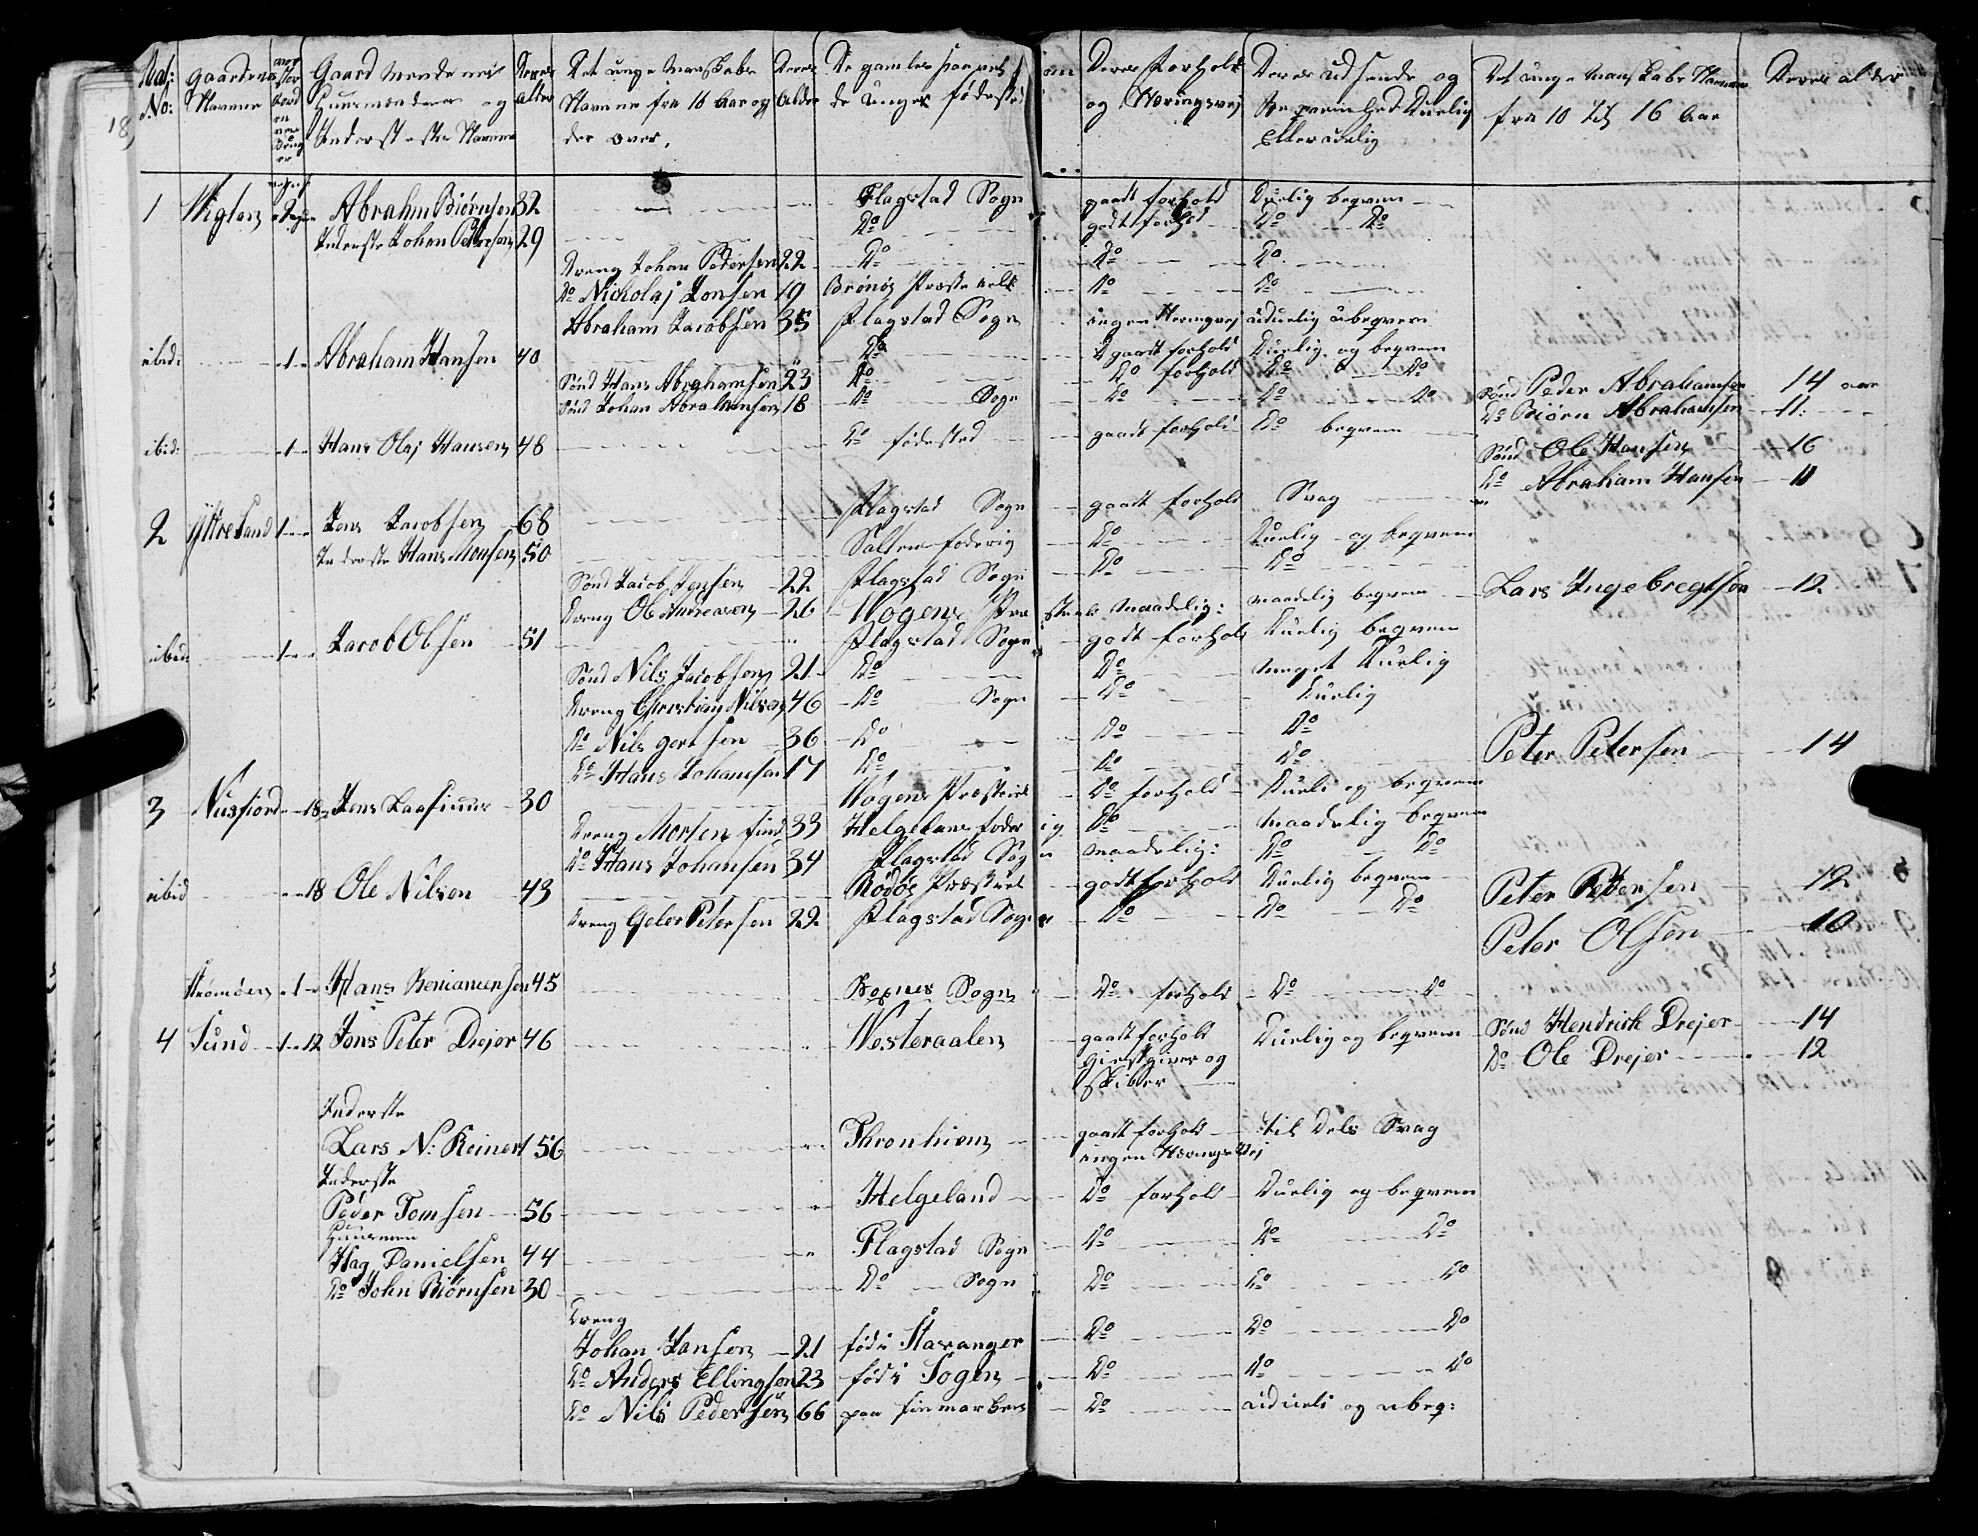 18
Mat: No: gaardens Navne Gaard Mendenis Huusmænderes og Inderstesters Navne Deres alder Det unge Mandskabs Navne fra 16 Aar og der over. Deres alder De gamles saavel de Unges fødested Deres Forhold og Næringsvej Deres udseende og Beqvemhed Duelig Eller uduelig Det unge Mandskabs Navne fra 10 til 16 Aar Deres alder
1 Abrahm Biørnsen 32 Flagstad Sogn gaadt forhold Duelig beqvem
Inderste Johan Pettersen 29 Do godt forhold Do Do
Dreng Johan Pedersen 22 Do Do Do
Do Nicholaj Jonsen 19 Brønøe Præstegield Do Do
Abraham Jacobsen 35 Flagstad Sogn ingen Næringsvej uduelig ubeqvem
ibid: 1 Abraham Hansen 40 Do gaadt forhold Duelig og beqvem
Sønd Hans Abrahamsen 23 Do Do forhold Do Do Sønd Peder Abrahamsen 14 aar
Sønd Johan Abrahamsen 18 Do Sogn Do Do Do Do Biørn Abrahamsen 11
ibid: 1 Hans Olaj Hansen 48 Do fødested gaadt forhold Do beqvem Sønd Ole Hansen 16
Do Abraham Hansen 11
2 Yttresand 1 Jens Jacobsen 68 Flagstad Sogn gaadt forhold Svag
Inderste Hans Monsen 50 Salten foderig Do Duelig og beqvem
Sønd Jacob Jensen 22 Flagstad Sogn Do Do
Dreng Ole Andreasen 26 Wogens Præstegi Maadelig: maadelig beqvem Lars Ingebregtson 12
ibid: 1 Jacob Olsen 51 Flagstad Sogn godt forhold Duelig beqvem
Sønd Nils Jacobsen 21 Do Do meget Duelig
Dreng Christian Nilsen 46 Do Sogn Do Duelig
Do Nils gortsen 36 Do Do Do Peter Petersen 14
Do Hans Johansen 17 Do Do Do
3 Nusfiord 18 Jens Laasiuus 30 Wogens Præstegield Do forhold Dueli og beqvem
Dreng Morten find 33 Helgelans foderig Do maadelig beqvem
Do Hans Johansen 34 Flagstad Sogn maadelig: Do Do
ibid 18 Ole Nilsen 43 Rødøe Præstegield godt forhold Duelig beqvem Peter Petersen 12
Dreng Peter Petersen 22 Flagstad Sogn Do Do Do Peter Olsen 10
Strømøen 1 Hans Beniamensen 45 Boxnes Sogn Do forhold Do Do
4 Sund 1 12 Jens Peter Drejer 46 Westeraalen gaadt forhold Giestgiver og Skiber Duelig og beqvem Sønd Hendrich Drejer 14
Do Ole Drejer 12
Inderste
Lars N: Reinert 56 Thronhiem gaadt forhold ingen Nærings Vej til Dels Svag
Inderste
Peder Tomsen 56 Helgeland Do forhold Duelig og beqvem
Huusmen
Hag Danielsen 44 Flagstad Sogn Do Do Do
Do John Biørnsen 30 Do Sogn Do Do Do
Dreng
Johan Jansen 21 fød i Stavanger Do Do Do
Do Anders Ellingsen 23 fød i Sogen Do Do Do
Do Nils Pedersen 66 paa finmarken Do udueli og ubeq: